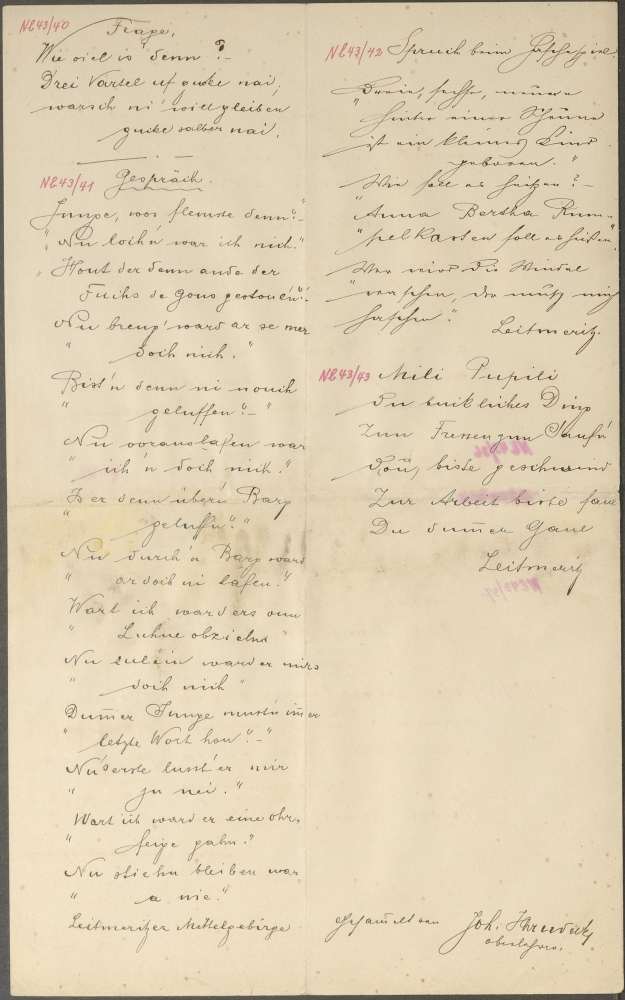 NL43/40
Frage.
Wie viel is denn?-
Drei Vartel uf guke nai,
warsch ni wied gleiben
guke salber nai.
NL43/41
Gespräch.
Junge, wos flennste denn"-
"Nu loch'n war ich nich."
"Hout der denn ande der
Fuchs de Gons gestouln"-
Nu breng' ward ar se mer
" doich nich."
Bist'n denn ni nouch
" geluffen"-"
Nu voraus lafen war
" ich'n doch nich."
Is er denn über'n Barg
" geluff'n"
Nu durch'n Barg ward
" ar doch ni lafen."
Wart ich ward ders vun
" Luhne obziehn
Nu zulein ward er mirs
" doich nich"
Dum̅er Junge must'n im̅er
" letzte Wort hon"-"
Nu's erste lusst er mir
" ju nei."
Wart ich ward er eine Ohr-
" feige gahn"
Nu stiehn bleiben war
" a nie."
Leitmeritzer Mittelgebirge
NL43/42 Spruch beim
"Dreie, sechse, neune
Hinter einer Scheune
ist ein kleines Kind
geboren."
Wie soll es heißen?-
"Anna Bertha Rum-
"pelkasten soll es heißen"
Wer wird die Windel
"waschen, der muß mich
haschen". Leitmeritz.
NL43/43 Mili Pupili
Du buckliches Ding
Zum Fressen zum Sauf'n
Dou, biste geschwind
Zur Arbeit biste faul
Du dum̅er Gaul
Leitmeritz
Gesam̅elt von Joh.
Oberlehrer.